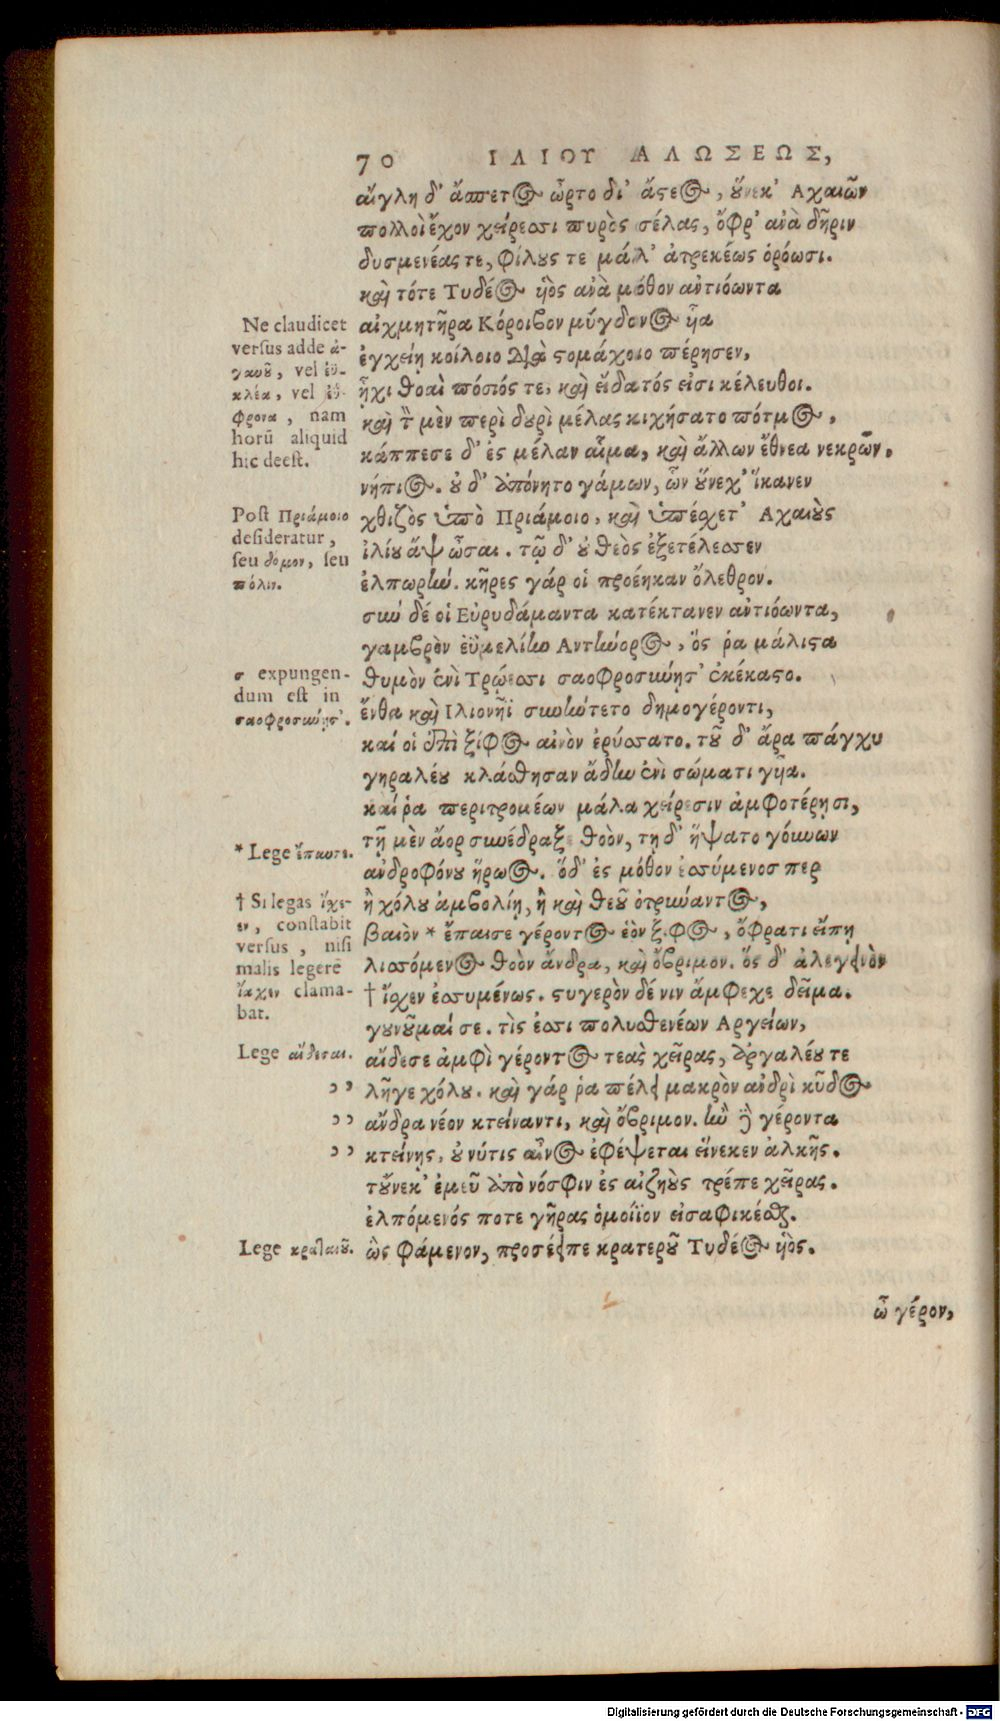 70 ΙΛΙΟΥ ΑΛΩΣΕΩΣ,
αἴγλη δ' ἄσπετος ὦρτο δι' ἄστεος, οὕνεκ' Αχαιῶν
πολλοὶ ἔχον χείρεσσι πυρὸς σέλας, ὄφρ' ἀνὰ δῆριν
δυσμενέας τε, φίλους τε μάλ' ἀτρεκέως ὁρόωσι.
καὶ τότε Τυδέος υἱὸς ἀνὰ μόθον ἀντιόωντα
Ne claudicet
versus adde ἀ-
γαυοῦ, vel ἐϋ-
κλέα, vel ἐΰ-
φρονα, nam
horū aliquid
hic deest.
αἰχμητῆρα Κόροιβον μύγδονος υἷα
ἐγχείῃ κοίλοιο διὰ στομάχοιο πέρησεν,
ᾗχι θοαὶ πόσιός τε, καὶ εἴδατός εἰσι κέλευθοι.
καὶ τ̀ μὲν περὶ δουρὶ μέλας κιχήσατο πότμος,
κάππεσε δ' ἐς μέλαν αἷμα, καὶ ἄλλων ἔθνεα νεκρῶν.
νήπιος. οὐ δ' ἀπόνητο γάμων, ὧν οὕνεχ' ἵκανεν
Post Πριάμοιο
desideratur,
seu δόμον, seu
πόλιν.
χθιζὸς ὑπὸ Πριάμοιο, καὶ ὑπέσχετ' Αχαιοὺς
ἰλίου ἂψ ὦσαι. τῷ δ' οὐ θεὸς ἐξετέλεσσεν
ἐλπωρὴν. κῆρες γάρ οἱ προέηκαν ὄλεθρον.
σὺν δέ οἱ Εὐρυδάμαντα κατέκτανεν ἀντιόωντα,
γαμβρὸν ἐϋμελίην Αντήνορος, ὅς ῥα μάλιστα
σ expungen-
dum est in
σαοφροσύνῃσ'.
θυμὸν ἐνὶ Τρώεσσι σαοφροσύνῃσ' ἐκέκαστο.
ἔνθα καὶ Ιλιονῆϊ συνήντετο δημογέροντι,
καί οἱ ἐπὶ ξίφος αἰνὸν ἐρύσσατο. τοῦ δ' ἄρα πάγχυ
γηραλέου κλάσθησαν ἄδην ἐνὶ σώματι γυῖα.
καί ῥα περιτρομέων μάλα χείρεσιν ἀμφοτέρῃσι,
* Lege ἔπαυσε.
τῇ μὲν ἄορ συνέδραξε θοὸν, τῇ δ' ἥψατο γούνων
ἀνδροφόνου ἥρωος. ὅδ' ἐς μόθον ἐσσύμενος περ
† Si legas ἴσχε-
εν, constabit
versus, nisi
malis legerē
ἴαχεν clama-
bat.
ἢ χόλου ἀμβολίῃ, ἢ καὶ θεοῦ ὀτρύναντος,
βαιὸν * ἔπαισε γέροντος ἑὸν ξίφος, ὄφρα τι εἴπῃ
λισσόμενος θοὸν ἄνδρα, καὶ ὄβριμον. ὅς δ' ἀλεγεινὸν
† ἴσχεν ἐσσυμένως. στυγερὸν δέ νιν ἄμφεχε δεῖμα.
γουνοῦμαί σε. τὶς ἐσσι πολυσθενέων Αργείων,
Lege αἴδεσαι.
αἴδεσε ἀμφὶ γέροντος τεὰς χεῖρας, ἀργαλέου τε
,, λῆγε χόλου. καὶ γάρ ῥα πέλει μακρὸν ἀνδρὶ κῦδος
,, ἄνδρα νέον κτείναντι, καὶ ὄβριμον. ἢν δὲ γέροντα
,, κτείνῃς, οὐ νύτις αἶνος ἐφέψεται εἵνεκεν ἀλκῆς.
τοὔνεκ' ἐμεῦ ἀπὸ νόσφιν ἐς αἰζηοὺς τρέπε χεῖρας.
ἐλπόμενός ποτε γῆρας ὁμοίϊον εἰσαφικέσθαι.
Lege κραταιοῦ.
ὣς φάμενον, προσέειπε κρατεροῦ Τυδέος υἱὸς.
ὦ γέρον,
Digitalisierung gefördert durch die Deutsche Forschungsgemeinschaft - DFG